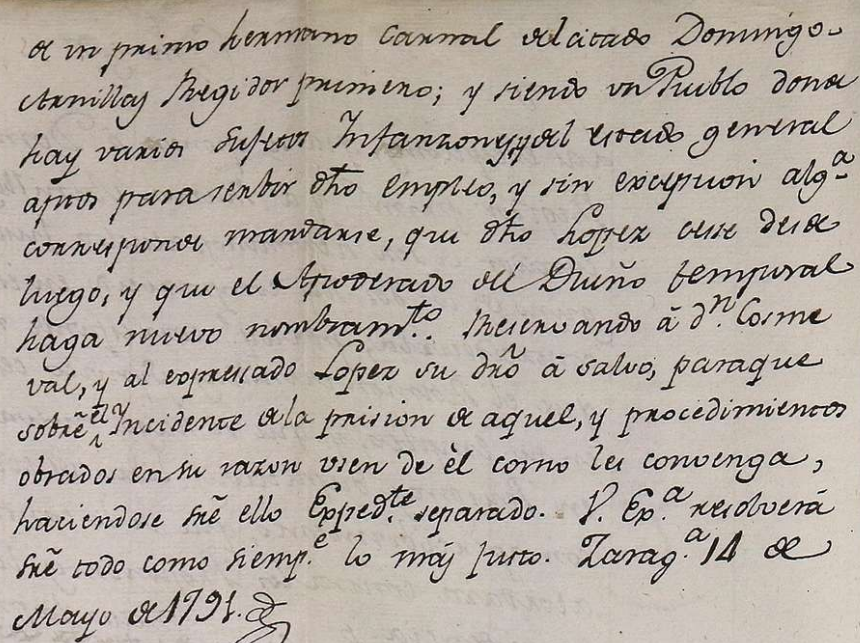 de un primo hermano carnal del citado Domingo
Arnillas Regidor primero; y siendo un Pueblo donde
hay varios sujetos Infanzones, y del estado general
aptos para serbir dho empleo, y sin excepcion algª
corresponde mandarse, que dho Lopez cese desde
luego, y que el Apoderado del Dueño temporal
haga nuevo nombramto. Reservando á dn. Cosme
val, y al expresado Lopez su dro á salvo, paraque
sobre el Yncidente dela prision de aquel, y procedimientos
obrados en su razon usen de èl como les convenga,
haciendose sre ello Expedte. separado. V. Exª resolverá
sre todo como siempe lo más justo. Zaragª 14 de
Mayo de 1791.